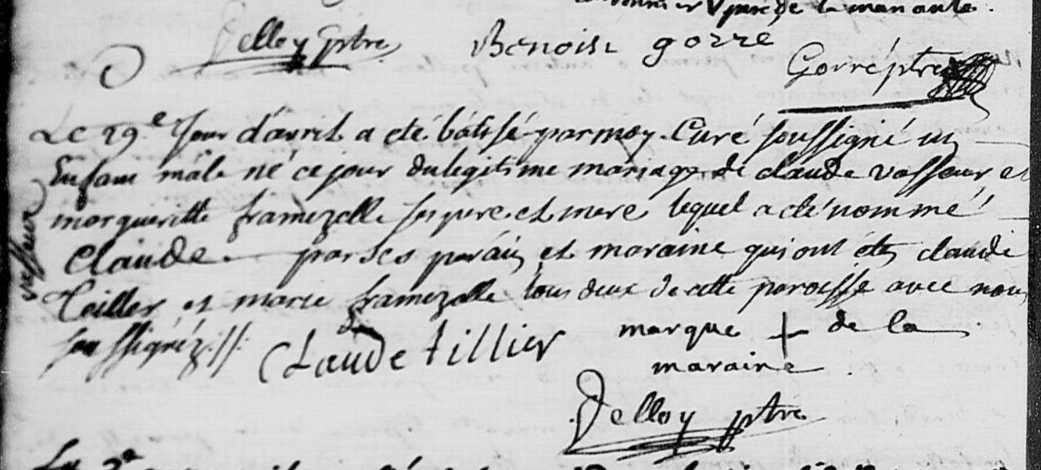 de la marante.
Delloy ptre
Benoist gorre
Gorré ptre
Le 29e Jour d'avril a eté bátisé par moy Curé soussigné un
Enfant mâle né ce jour du legitime mariage de claude vasseur et
margueritte framezelle ses pere et mere lequel a eté nommé
claude par ses parain et maraine qui ont eté claude
Teiller et marie framezelle tous deux de cette paroisse avec nous
soussignéz //
vasseur
Claude tillier
marque + de la
maraine.
Delloy ptre